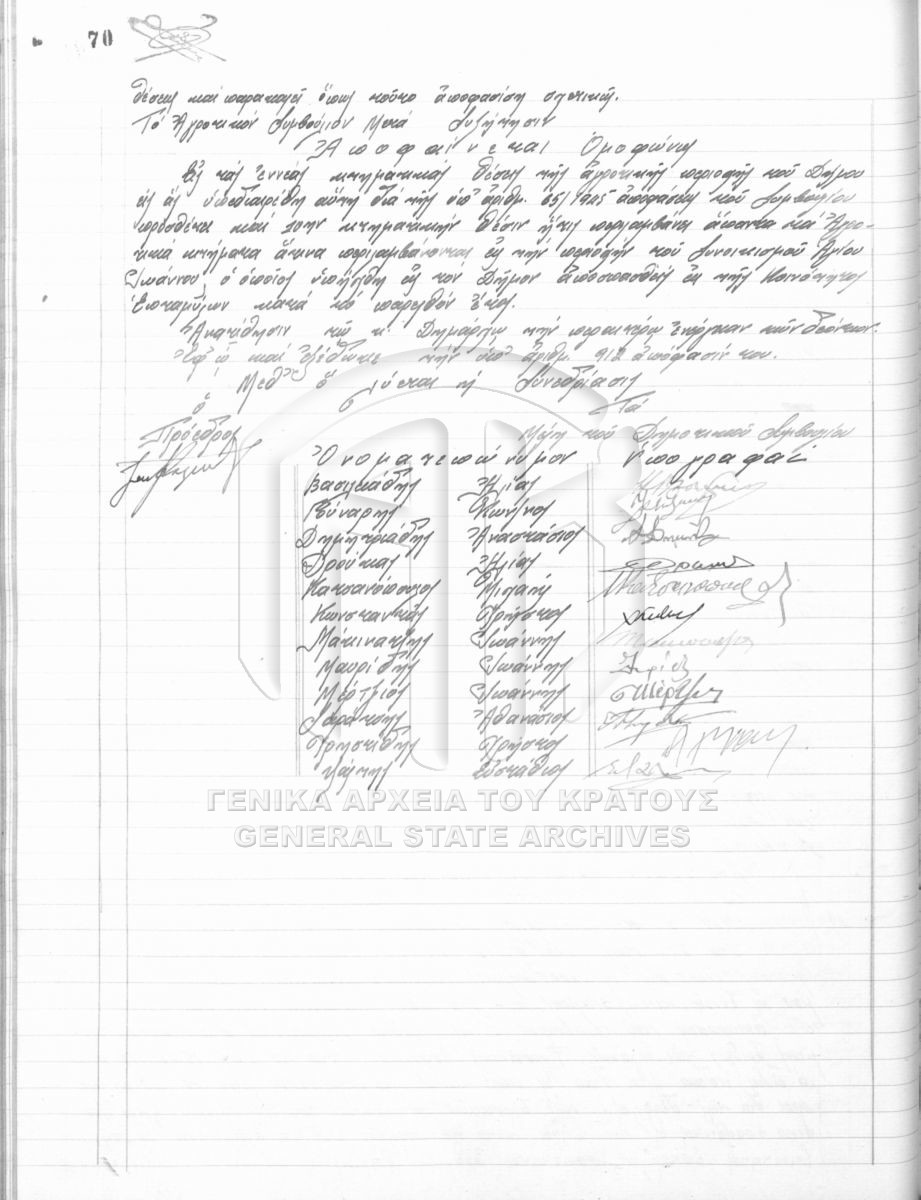 70
θέσεως και παρακαλεί όπως τούτο αποφασίση σχετικώς.
Το Αγροτικόν Συμβούλιον Μετά Συζήτησιν
Αποφαίνεται Ομοφώνως
Εις τας εννέας κτηματικάς θέσεις της αγροτικής περιοχής του Δήμου
εις ας υποδιαιρέθη αύτη διά της υπ' αριθμ. 65/1945 αποφάσεως του Συμβουλίου
προσθέτει και 10ην κτηματικήν θέσιν ήτις περιλαμβάνει άπαντα τα Αγρο-
τικά κτήματα άτινα περιλαμβάνονται εις την περιοχήν του Συνοικισμού Αγίου
Ιωάννου, ο οποίος υπήχθη εις τον Δήμον αποσπασθείς εκ της Κοινότητος
Επταμύλων κατά το παρελθόν έτος.
Ανατίθησιν τω κ. Δημάρχω την περαιτέρω ενέργειαν των δεόντων.
Εφ' ω και εξέδωκε την υπ' αριθμ. 912 απόφασίν του.
Μεθ' ο λύεται η Συνεδρίασις
Ο Τα
Πρόεδρος Μέλη του Δημοτικού Συμβουλίου
Ονοματεπώνυμον Υπογραφαί
Βασιλειάδης Ηλίας
Κων/νος
Δημητριάδης Αναστάσιος
Δρούκας Ηλίας
Κατσανόπουλος Μιχαήλ
Κωνσταντάς Χρήστος
Ιωάννης
Μαυρίδης Ιωάννης
Μέρτζιος Ιωάννης
Σαράτσης Αθανάσιος
Χρηστίδης Χρήστος
Ευστάθιος
ΓΕΝΙΚΑ ΑΡΧΕΙΑ ΤΟΥ ΚΡΑΤΟΥΣ
GENERAL STATE ARCHIVES